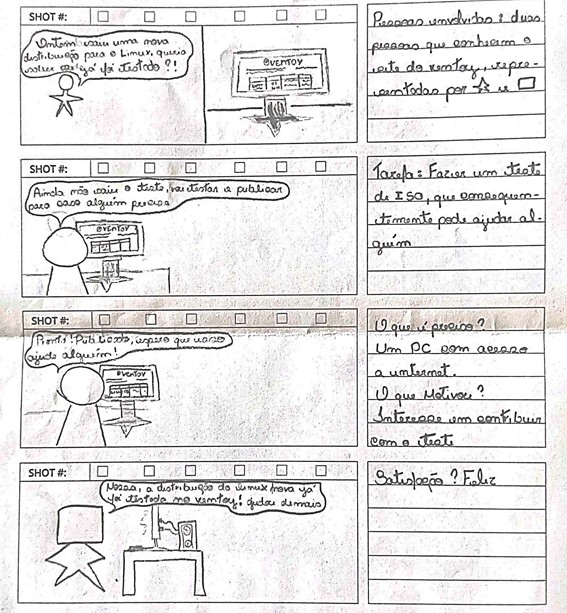 SHOT #:
Ontem saiu uma nova
distribuição para o Linux, queria
saber se já foi testado ?!
VENTOY
Pessoas envolvidas : duas
pessoas que conhecem o
site do ventoy, repre-
sentadas por ☆ e □
SHOT #:
Ainda não saiu o teste, vou testar e publicar
para caso alguém precise
VENTOY
Tarefa : Fazer um teste
de ISO, que consequen-
temente pode ajudar al-
guém
SHOT #:
Pronto! Publicado, espero que
ajude alguém!
VENTOY
O que é preciso ?
Um PC com acesso
a internet.
O que Motivou ?
Interesse em contribuir
com o teste
SHOT #:
Nossa, a distribuição do Linux nova já
foi testada no ventoy! ajudou demais
Satisfação ? Feliz